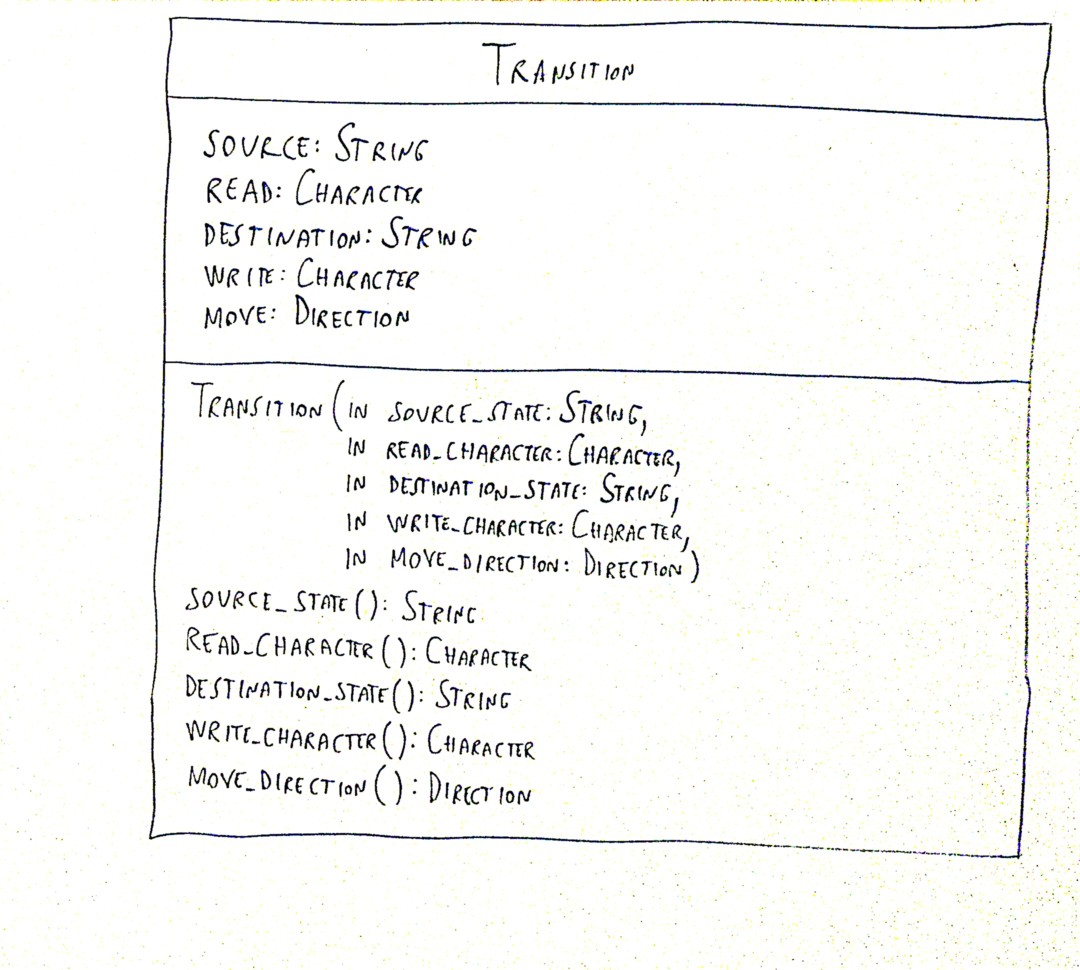 TRANSITION
SOURCE: STRING
READ: CHARACTER
DESTINATION: STRING
WRITE: CHARACTER
MOVE: DIRECTION
TRANSITION (IN SOURCE_STATE: STRING,
IN READ_CHARACTER: CHARACTER,
IN DESTINATION_STATE: STRING,
IN WRITE_CHARACTER: CHARACTER,
IN MOVE_DIRECTION: DIRECTION)
SOURCE_STATE(): STRING
READ_CHARACTER(): CHARACTER
DESTINATION_STATE(): STRING
WRITE_CHARACTER(): CHARACTER
MOVE_DIRECTION(): DIRECTION